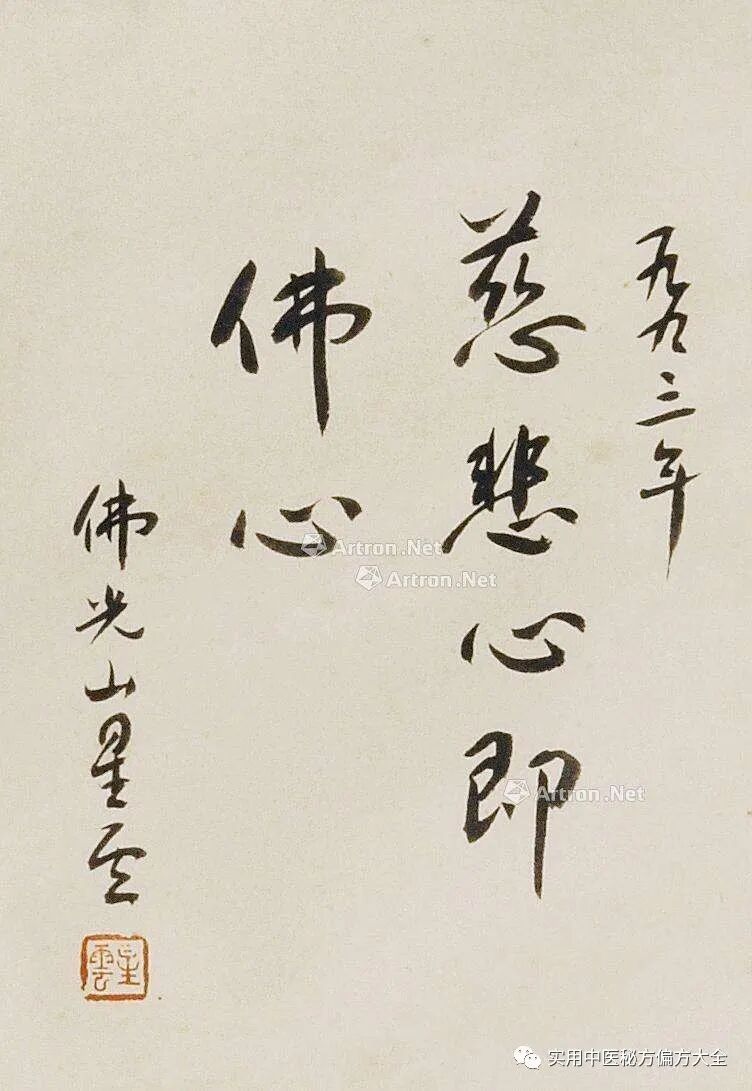 一九九三年
慈悲心即
佛心
佛光山星云
星雲
Artron.Net
Artron.Net
Artron.Net
实用中医秘方偏方大全